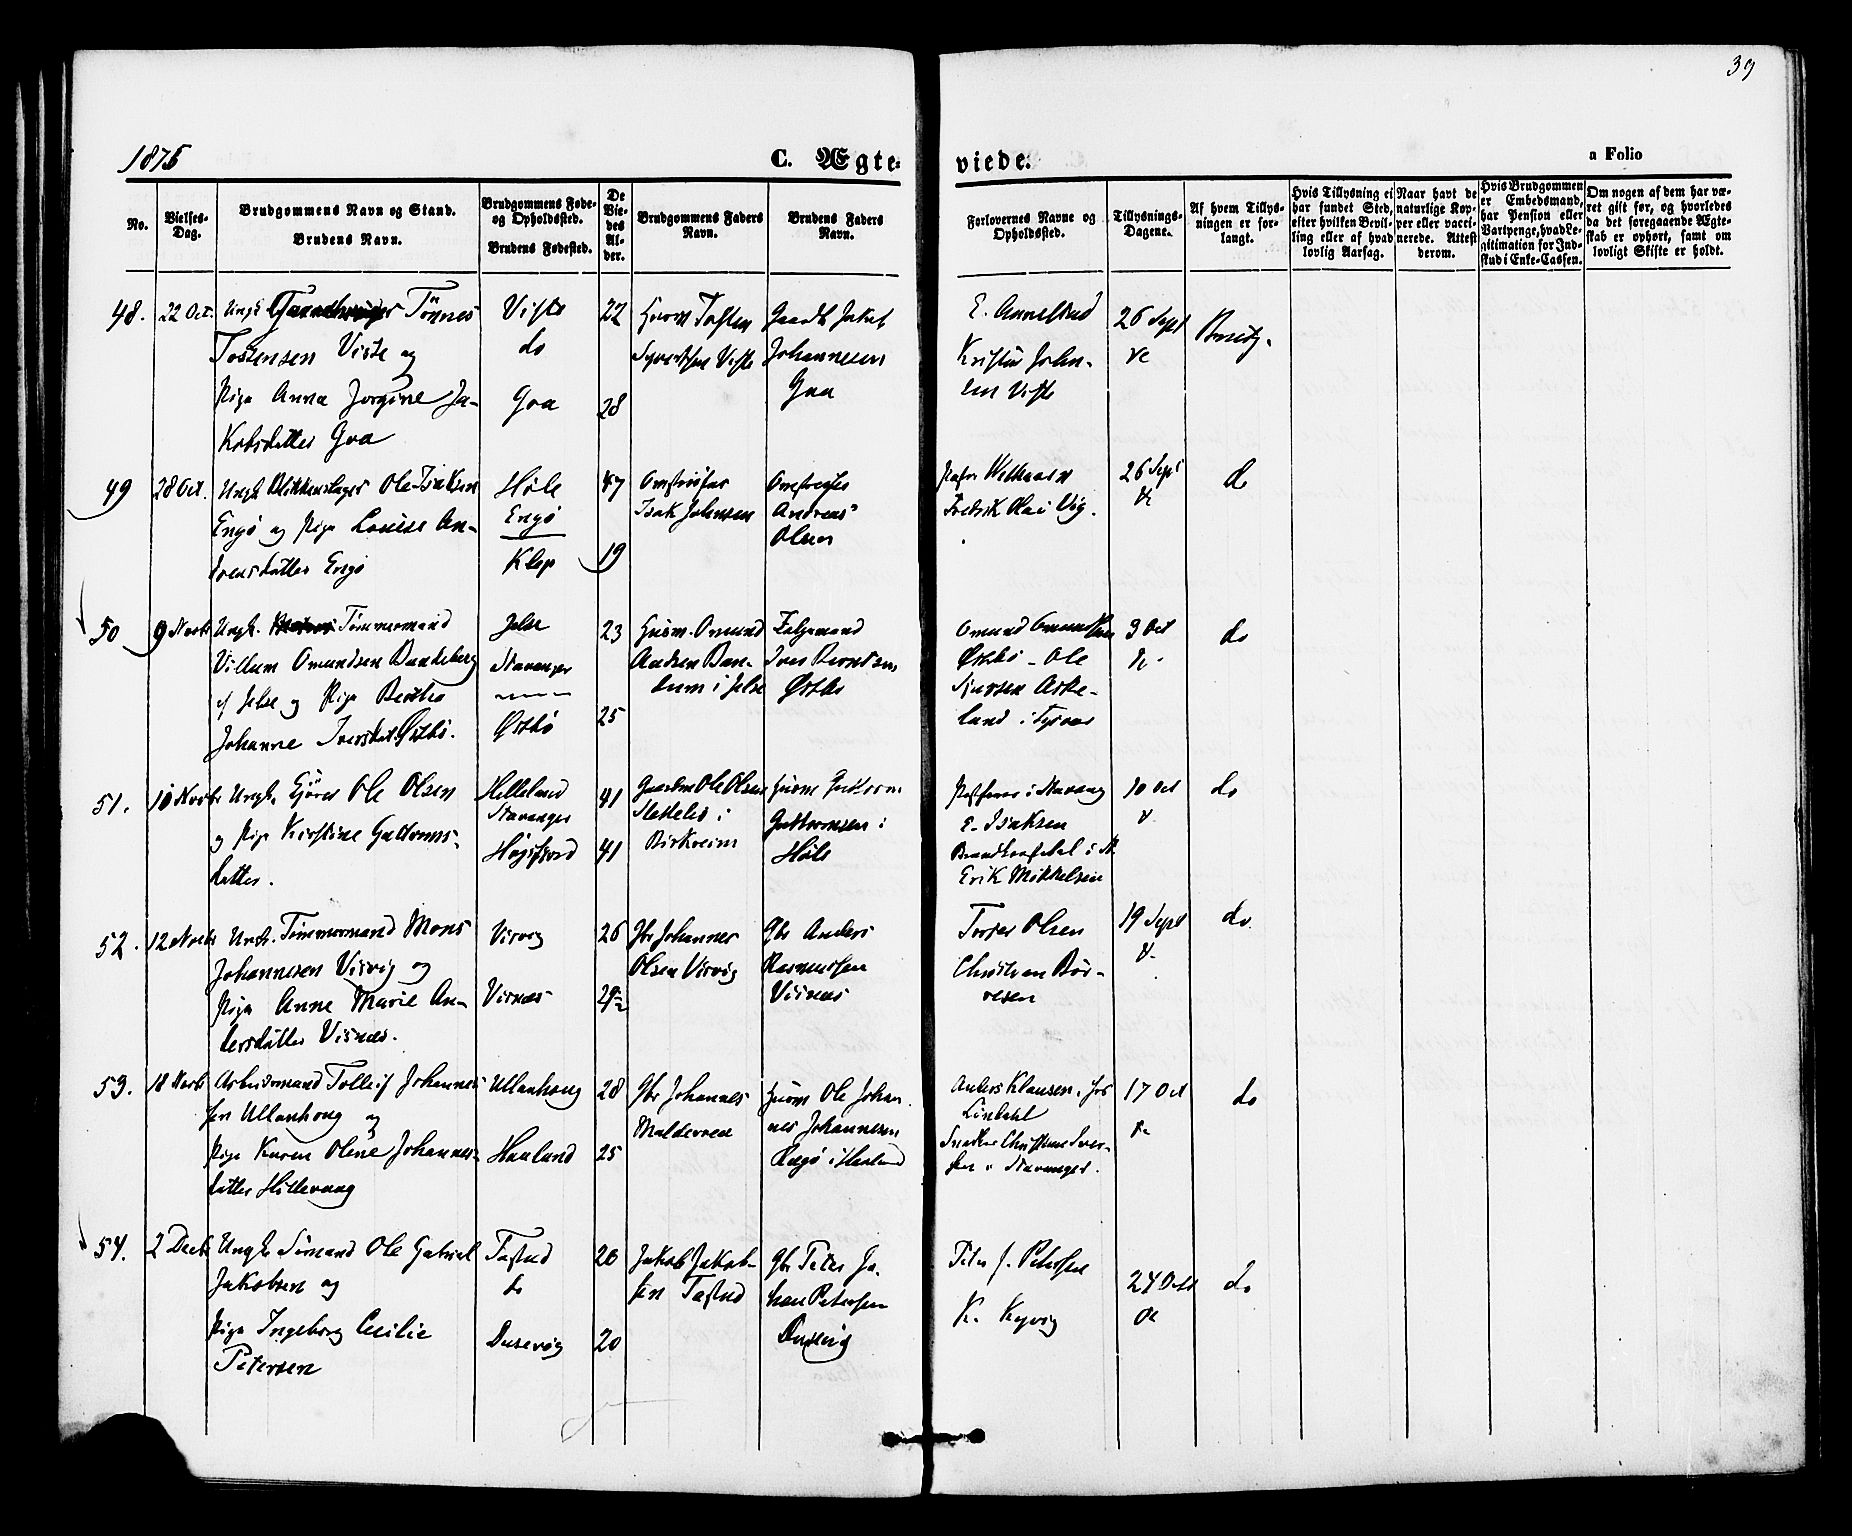 39
1875
C. Ægte-
viede.
a Folio
No.
Vielses-
Dag.
Brudgommens Navn og Stand.
Brudens Navn.
Brudgommens Føde-
og Opholdssted.
Brudens Fødested.
De
Vie-
des
Al-
der.
Brudgommens Faders
Navn.
Brudens Faders
Navn.
Forlovernes Navne og
Opholdssted.
Tillysnings-
Dagene.
Af hvem Tillys-
ningen er for-
langt.
Hvis Tillysning ei
har fundet Sted,
efter hvilken Bevil-
ling eller af hvad
lovlig Aarsag.
Naar havt de
naturlige Kop-
per eller vacci-
nerede. Attest
derom.
Hvis Brudgommen
er Embedsmand,
har Pension eller
Vartpenge, hvad Le-
gitimation for Ind-
skud i Enke-Cassen.
Om nogen af dem har væ-
ret gift før, og hvorledes
da det foregaaende Ægte-
skab er ophørt, samt om
lovligt Skifte er holdt.
48.
22 Oct.
Ungk Tønnes
Tostensen Viste og
Pige Anna Jorgine Ja-
kobsdatter Goa
Viste
do
Goa
22
28
Husm Tosten
Syvertsen Viste
Gaardb Jakob
Johannesen
Goa
E. Annestad
Kristen John-
sen Viste
26 Sept
49
28 Oct.
Ungk Blikkenslager Ole Isaksen
Engø og Pige Louise An-
dreasdatter Engø
Høle
Engø
Klep
47
19
Isak Johnsen
Andreas
Olsen
Fredrik Olai Vig.
26 Sept
do
50
9 Novb
Ungk. Tømmermand
Villum Omundsen Bandeberg
af Jelse og Pige Bertha
Johanne Iversdat. Østbø.
Jelse
Stavanger
Østbø
23
25
Husm. Omund
Andsen Ban-
dum i Jelse
Iver Berntsen
Østbø
Omund Omundsen
Østbø - Ole
Sjursen Aske-
land i Tysvær
3 Oct
do
51.
10 Novbr
Ungk. Gjører Ole Olsen
og Pige Kirstine Guttorms-
datter.
Helleland
Stavanger
Høgsfjord
41
41
Gaardm Ole Olsen
Slettebø i
Birkreim
Husm Guttorm
Guttormsen i
Høle
E. Isaksen
Erik Mikkelsen
10 Oct
do
52.
12 Novb
Ungk. Tømmermand Mons
Johannesen Visvig og
Pige Anne Marie An-
dersdatter Visnæs.
Visvig
Visnæs
26
Gbr Johannes
Olsen Visvig
Gbr Anders
Rasmussen
Visnæs
Torger Olsen
Christian Bør-
resen
19 Sept
do.
53.
18 Novb
Arbeidsmand Tolleif Johannes-
sen Ullanhoug og
Pige Karen Oline Johannes-
datter Hillevaag
Ullanhoug
Haaland
28
25
Gbr Johannes
Husm Ole Johan
nes Johannesen
i Haaland
Anders Klausen, hos
Lindahl
i Stavanger.
17 Oct
do
54.
2 Decb
Ungk Sømand Ole Gabriel
Jakobsen og
Pige Ingeborg Cecilie
Petersen
Tastad
do
Dusevig
20
20
Jakob Jakob-
sen Tastad
Gbr Peter Jo-
han Petersen
Dusevig
Peter J. Petersen
K. Kyvig
24 Octb
do